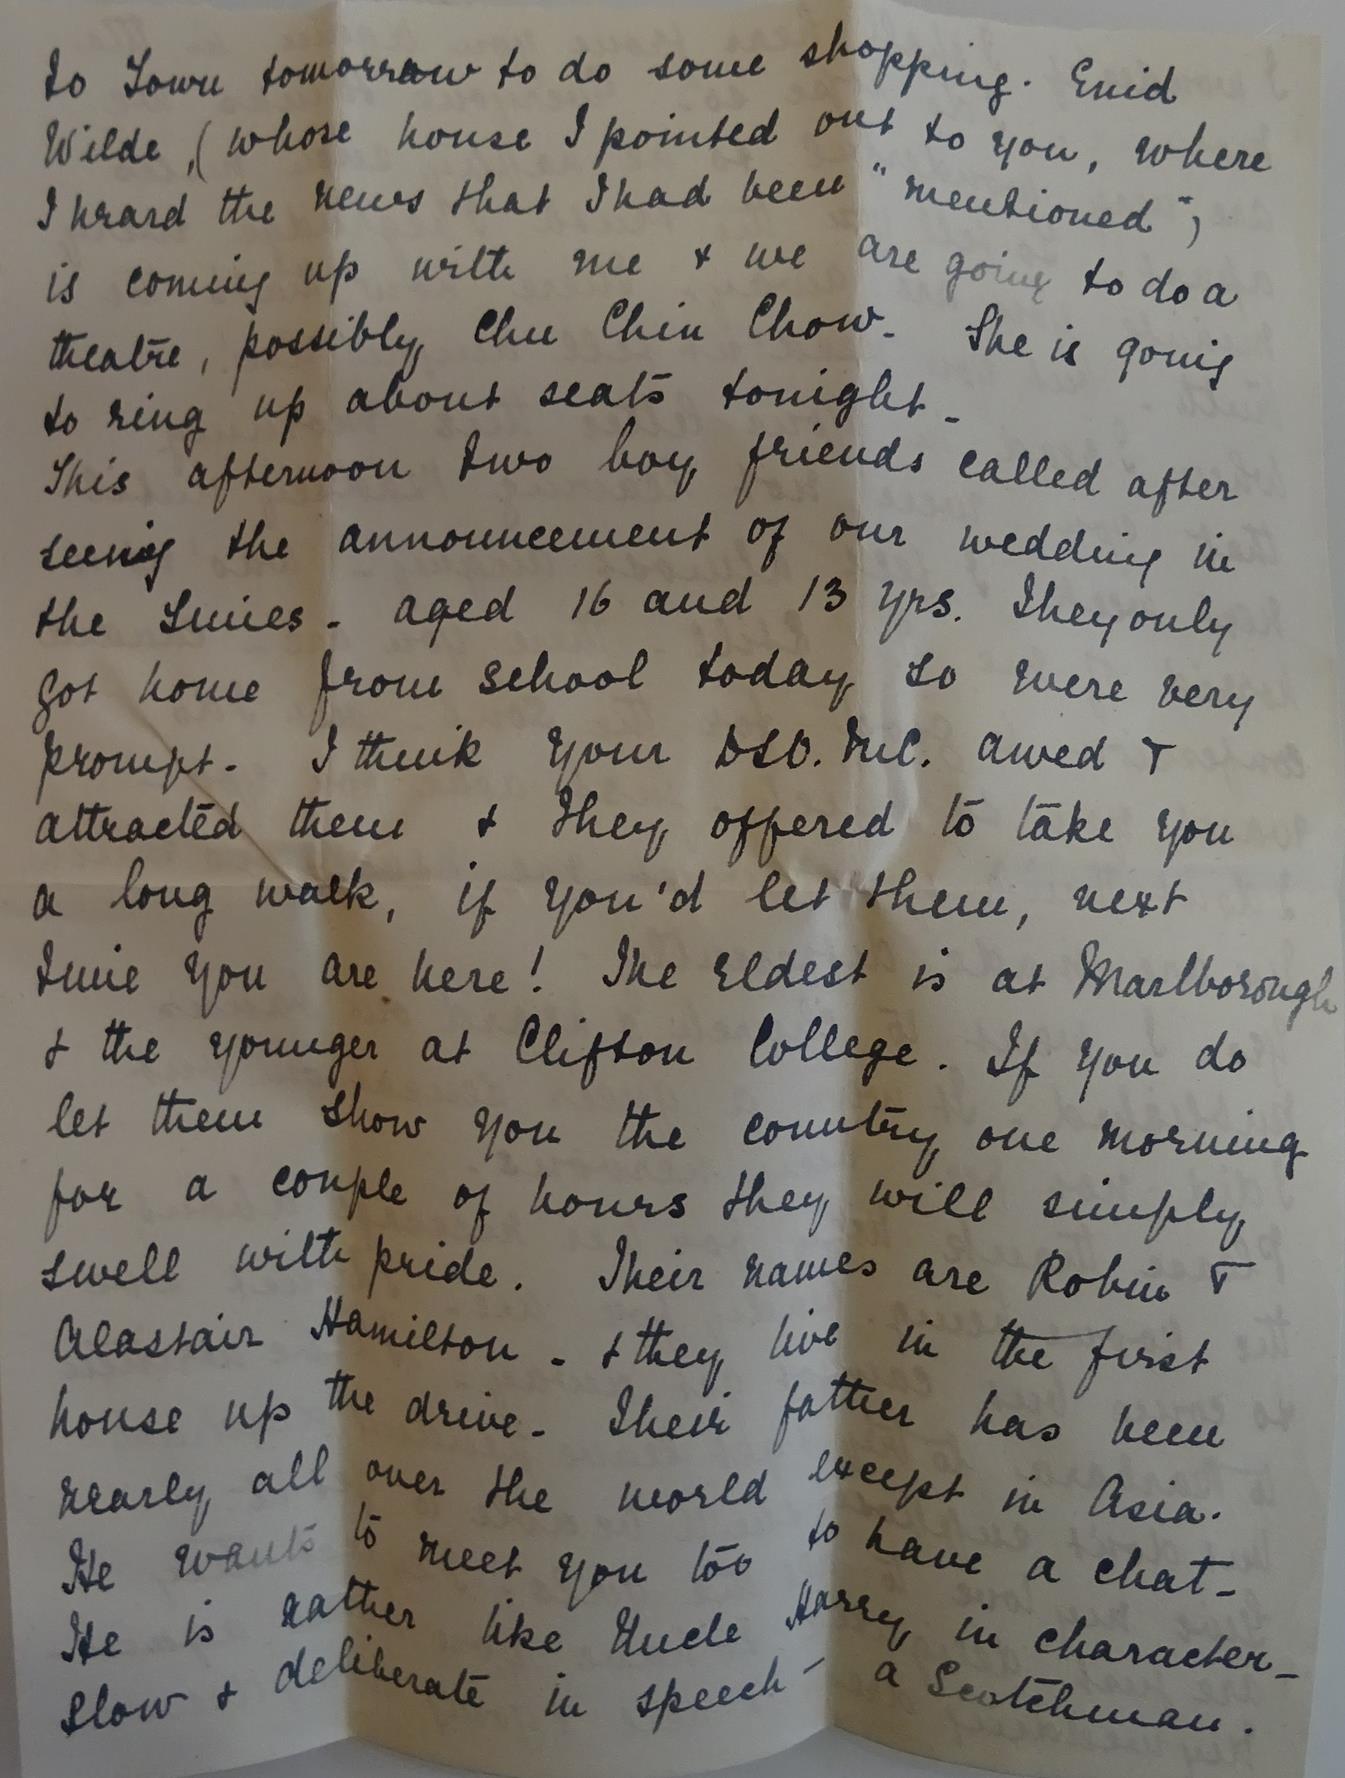 to Town tomorrow to do some shopping. Enid
Wilde, (whose house I pointed out to you, where
I heard the news that I had been "mentioned",
is coming up with me & we are going to do a
theatre, possibly Chu Chin Chow. She is going
to ring up about seats tonight -
This afternoon two boy friends called after
seeing the announcement of our wedding in
the Times - aged 16 and 13 yrs. They only
got home from school today so were very
prompt - I think your DSO. M.C. awed &
attracted them & they offered to take you
a long walk, if you'd let them, next
time you are here! The eldest is at Marlborough
& the younger at Clifton College. If you do
let them show you the country one morning
for a couple of hours they will simply
swell with pride. Their names are Robin &
Alastair Hamilton - & they live in the first
house up the drive - Their father has been
nearly all over the world except in Asia.
He wants to meet you too to have a chat -
He is rather like Uncle Harry in character -
slow & deliberate in speech - a Scotchman.